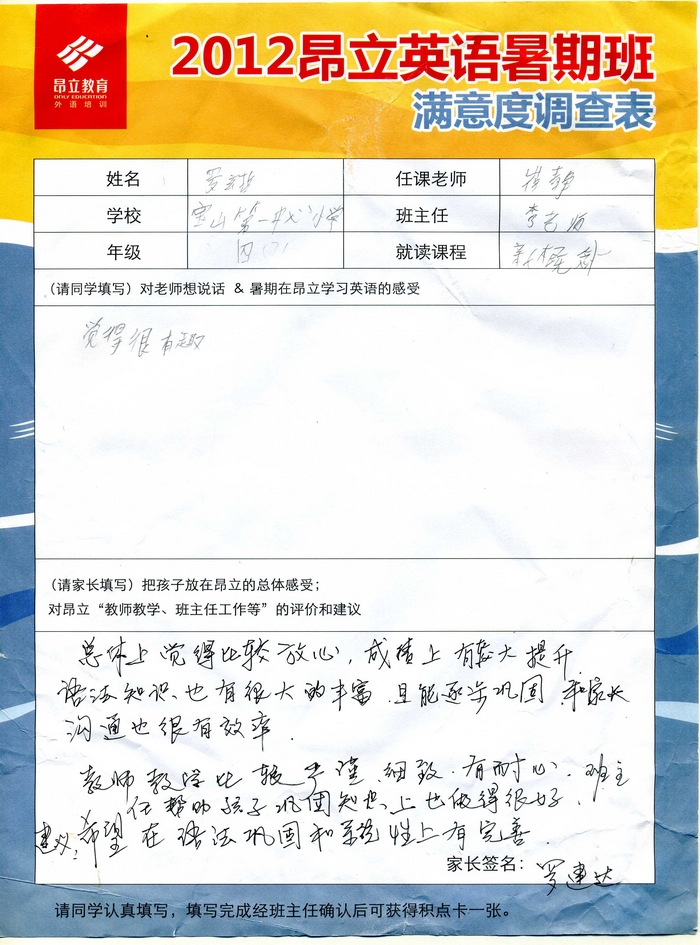 昂立教育
ONLY EDUCATION
外语培训
2012昂立英语暑期班
满意度调查表
姓名 罗 任课老师 韩静
学校 宝山第一中心小学 班主任 李老师
年级 四 就读课程 新概念
(请同学填写)对老师想说话 & 暑期在昂立学习英语的感受
觉得很有趣
(请家长填写)把孩子放在昂立的总体感受;
对昂立“教师教学、班主任工作等”的评价和建议
总体上觉得比较放心,成绩上有较大提升
语法知识也有很大的丰富,且能逐步巩固,和家长
沟通也很有效率.
教师教学比较严谨、细致、有耐心,班主
任帮助孩子巩固知识上也做得很好,
建议:希望在语法巩固和系统性上有完善.
家长签名: 罗建达
请同学认真填写,填写完成经班主任确认后可获得积点卡一张。